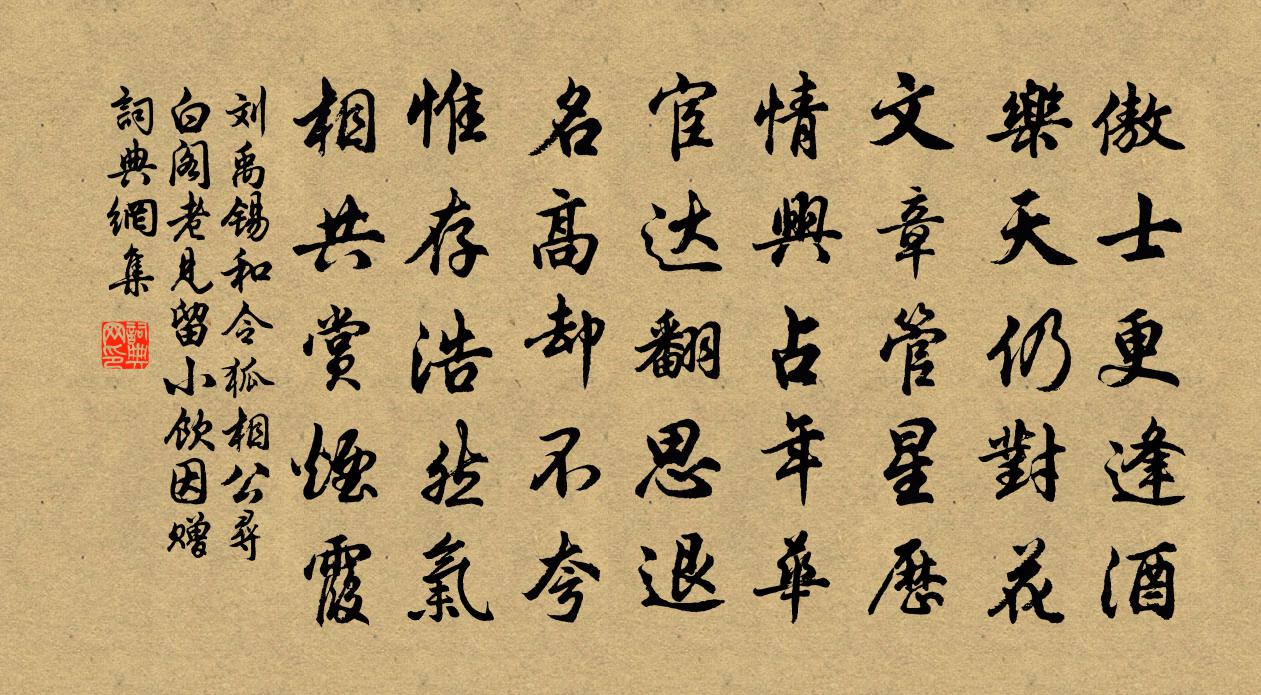 傲士更逢酒
樂天仍對花
文章管星歷
情興占年華
宦达翻思退
名高却不夸
惟存浩然氣
相共赏煙霞
刘禹锡和令狐相公尋
白阁老見留小飲因赠
詞典網集
詞典
网印